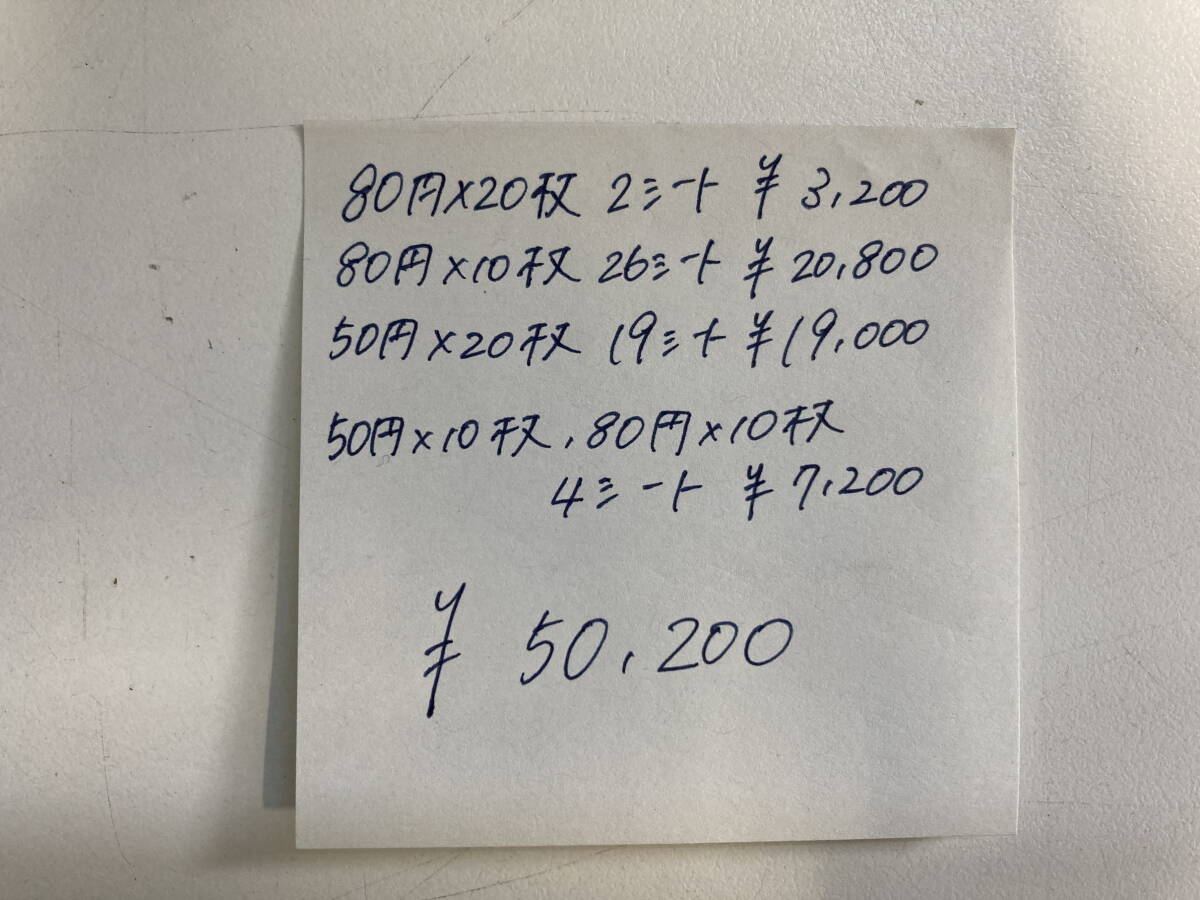 80円×20枚 2シート ¥3,200
80円×10枚 26シート ¥20,800
50円×20枚 19シート ¥19,000
50円×10枚、80円×10枚
4シート ¥7,200
¥50,200